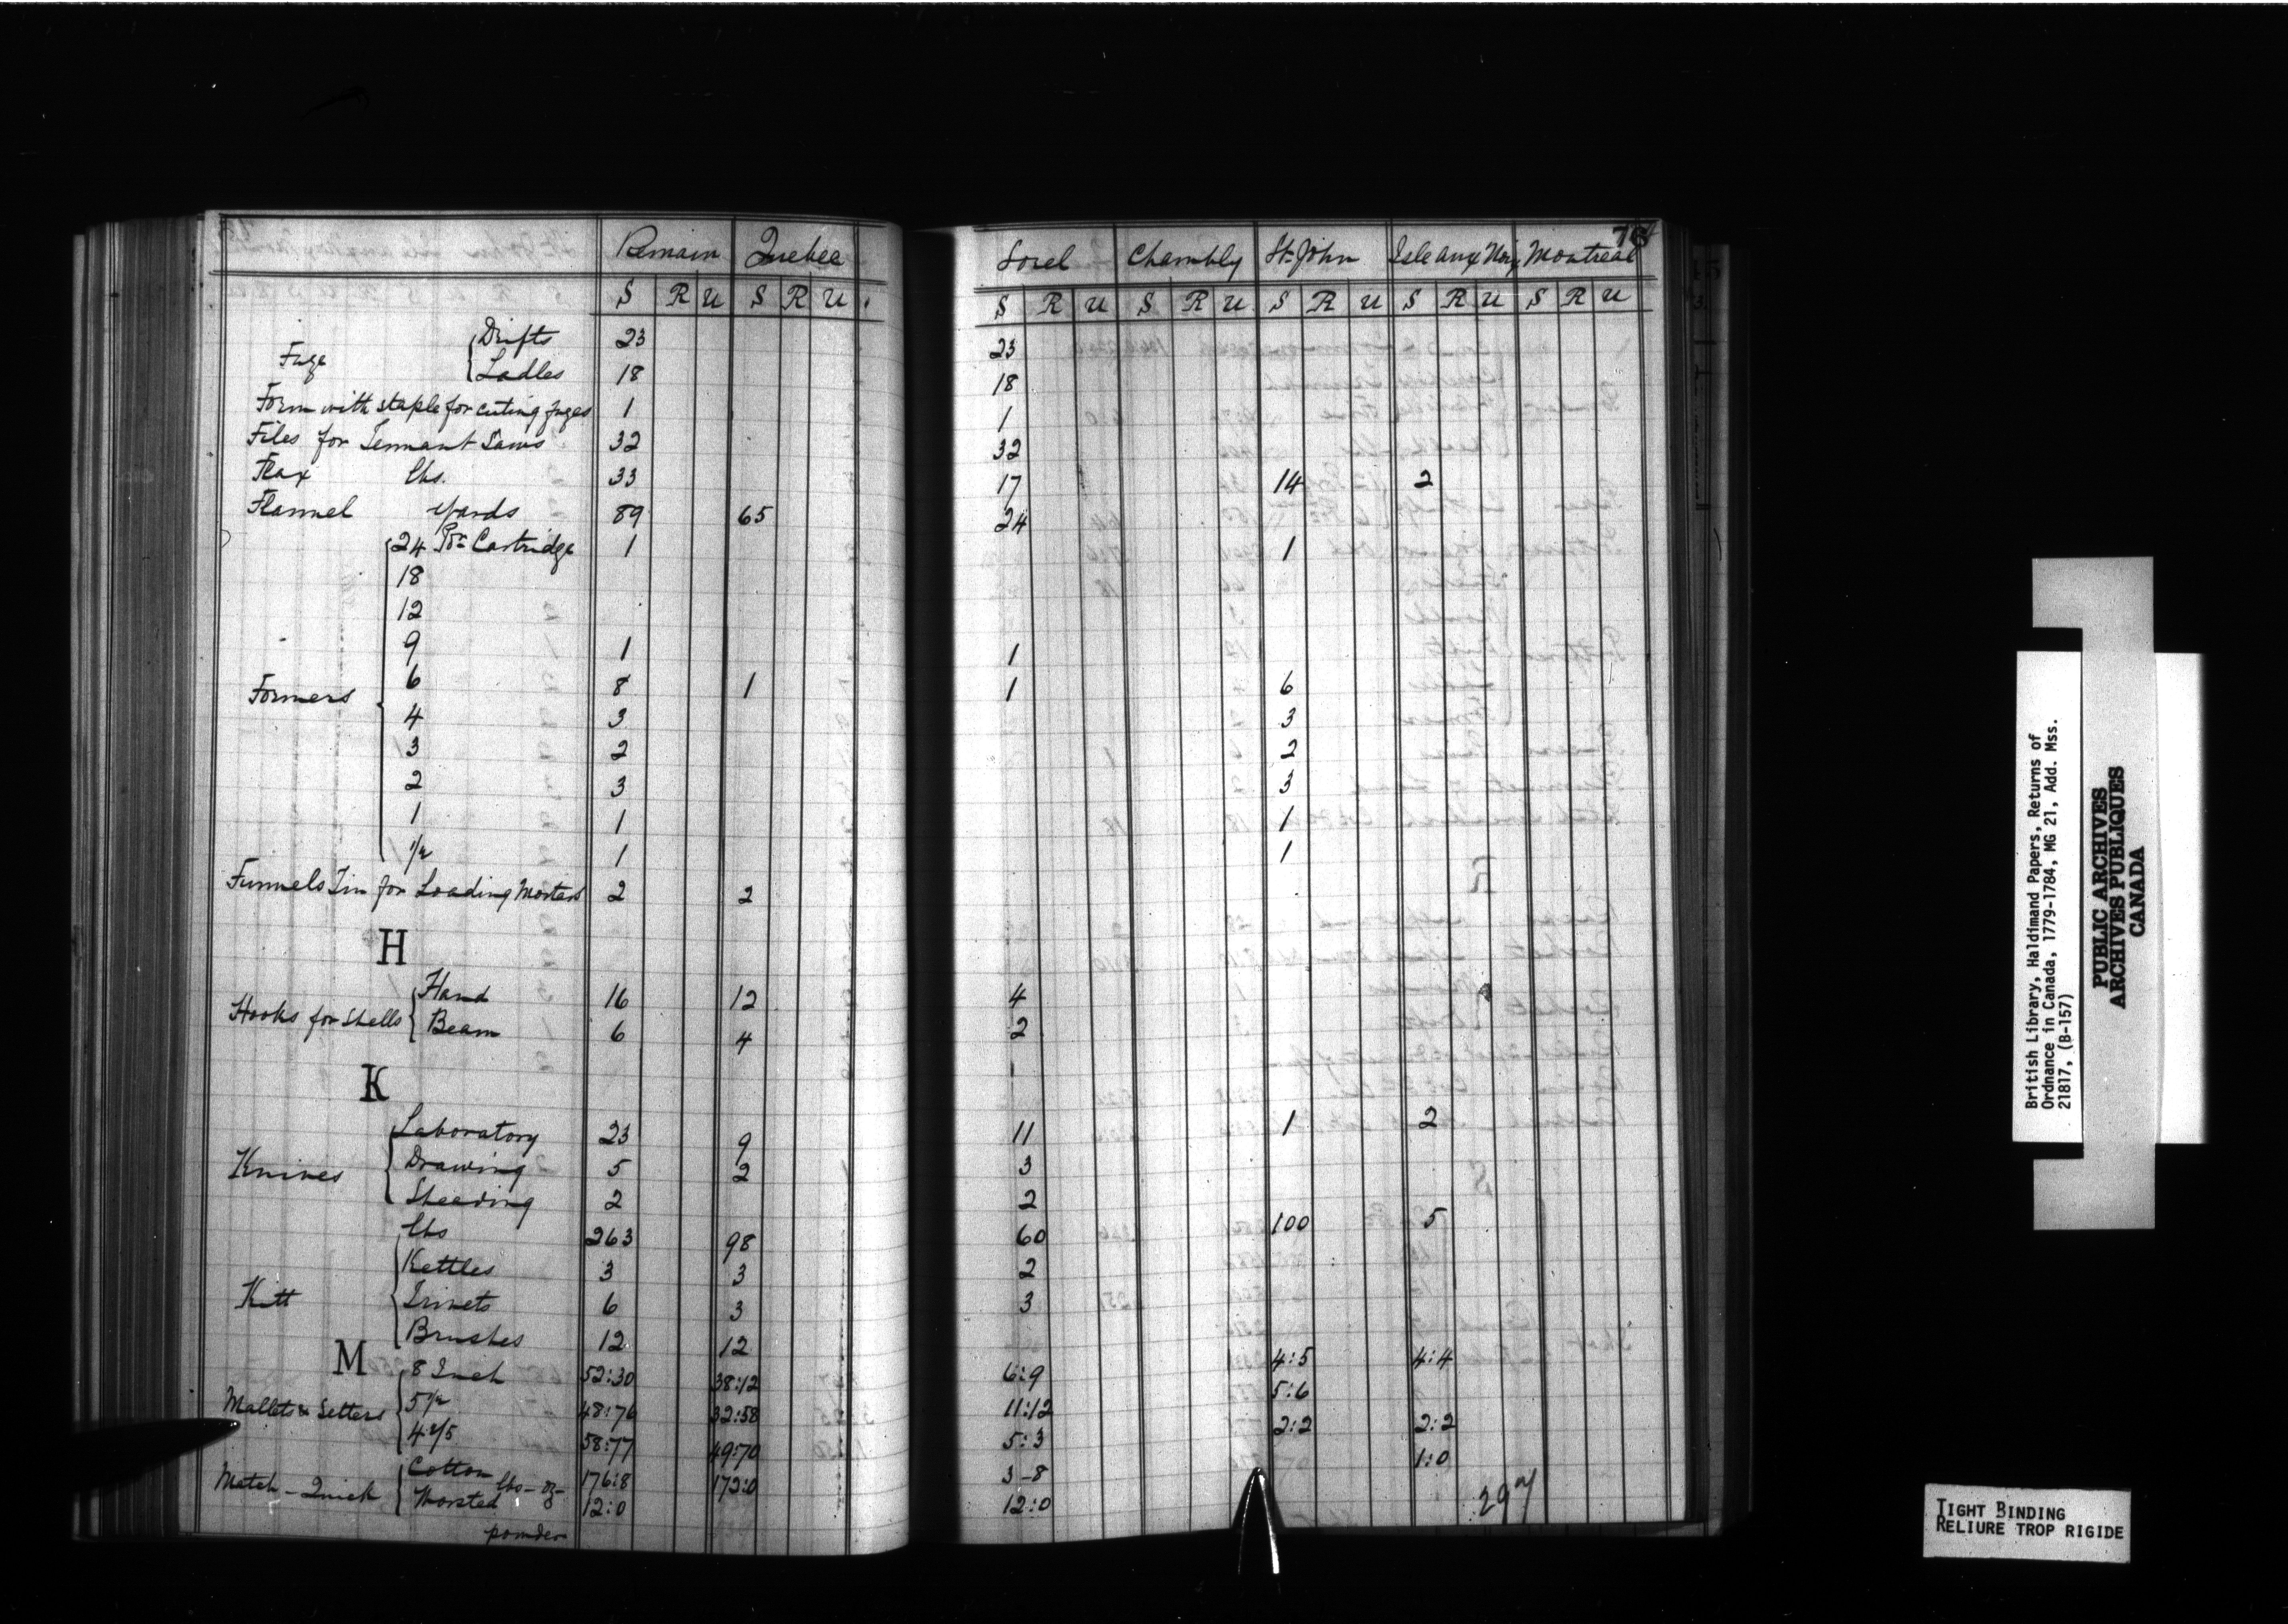 76
Remain Quebec Sorel Chambly St. John Isle aux Noix Montreal
S R U S R U S R U S R U S R U S R U S R U
Fuze { Drifts 23 23
Ladles 18 18
Form with staple for cuting fuzes 1 1
Files for Tennant Saws 32 32
Flax lbs. 33 17 14 2
Flannel yards 89 65 24
Formers { 24 Pdr Cartridge 1 1
18
12
9 1 1
6 8 1 1 6
4 3 3
3 2 2
2 3 3
1 1 1
1/2 1 1
Funnels Tin for Loading Mortars 2 2
H
Hooks for Shells { Hand 16 12 4
Beam 6 4 2
K
Knives { Laboratory 23 9 11 1 2
Drawing 5 2 3
Sheeding 2 2
Kitt { lbs 263 98 60 100 5
Kettles 3 3 2
Trivets 6 3 3
Brushes 12 12
M
Mallets & Setters { 8 Inch 52:30 38:12 6:9 4:5 4:4
5 1/2 48:76 32:58 11:12 5:6
4 2/5 58:77 49:70 5:3 2:2 2:2
Match - Quick { Cotton lbs - oz - 176:8 172:0 3-8 1:0
Worsted 12:0 12:0
powder
British Library, Haldimand Papers, Returns of
Ordnance in Canada, 1779-1784, MG 21, Add. Mss.
21817, (B-157)
PUBLIC ARCHIVES
ARCHIVES PUBLIQUES
CANADA
TIGHT BINDING
RELIURE TROP RIGIDE